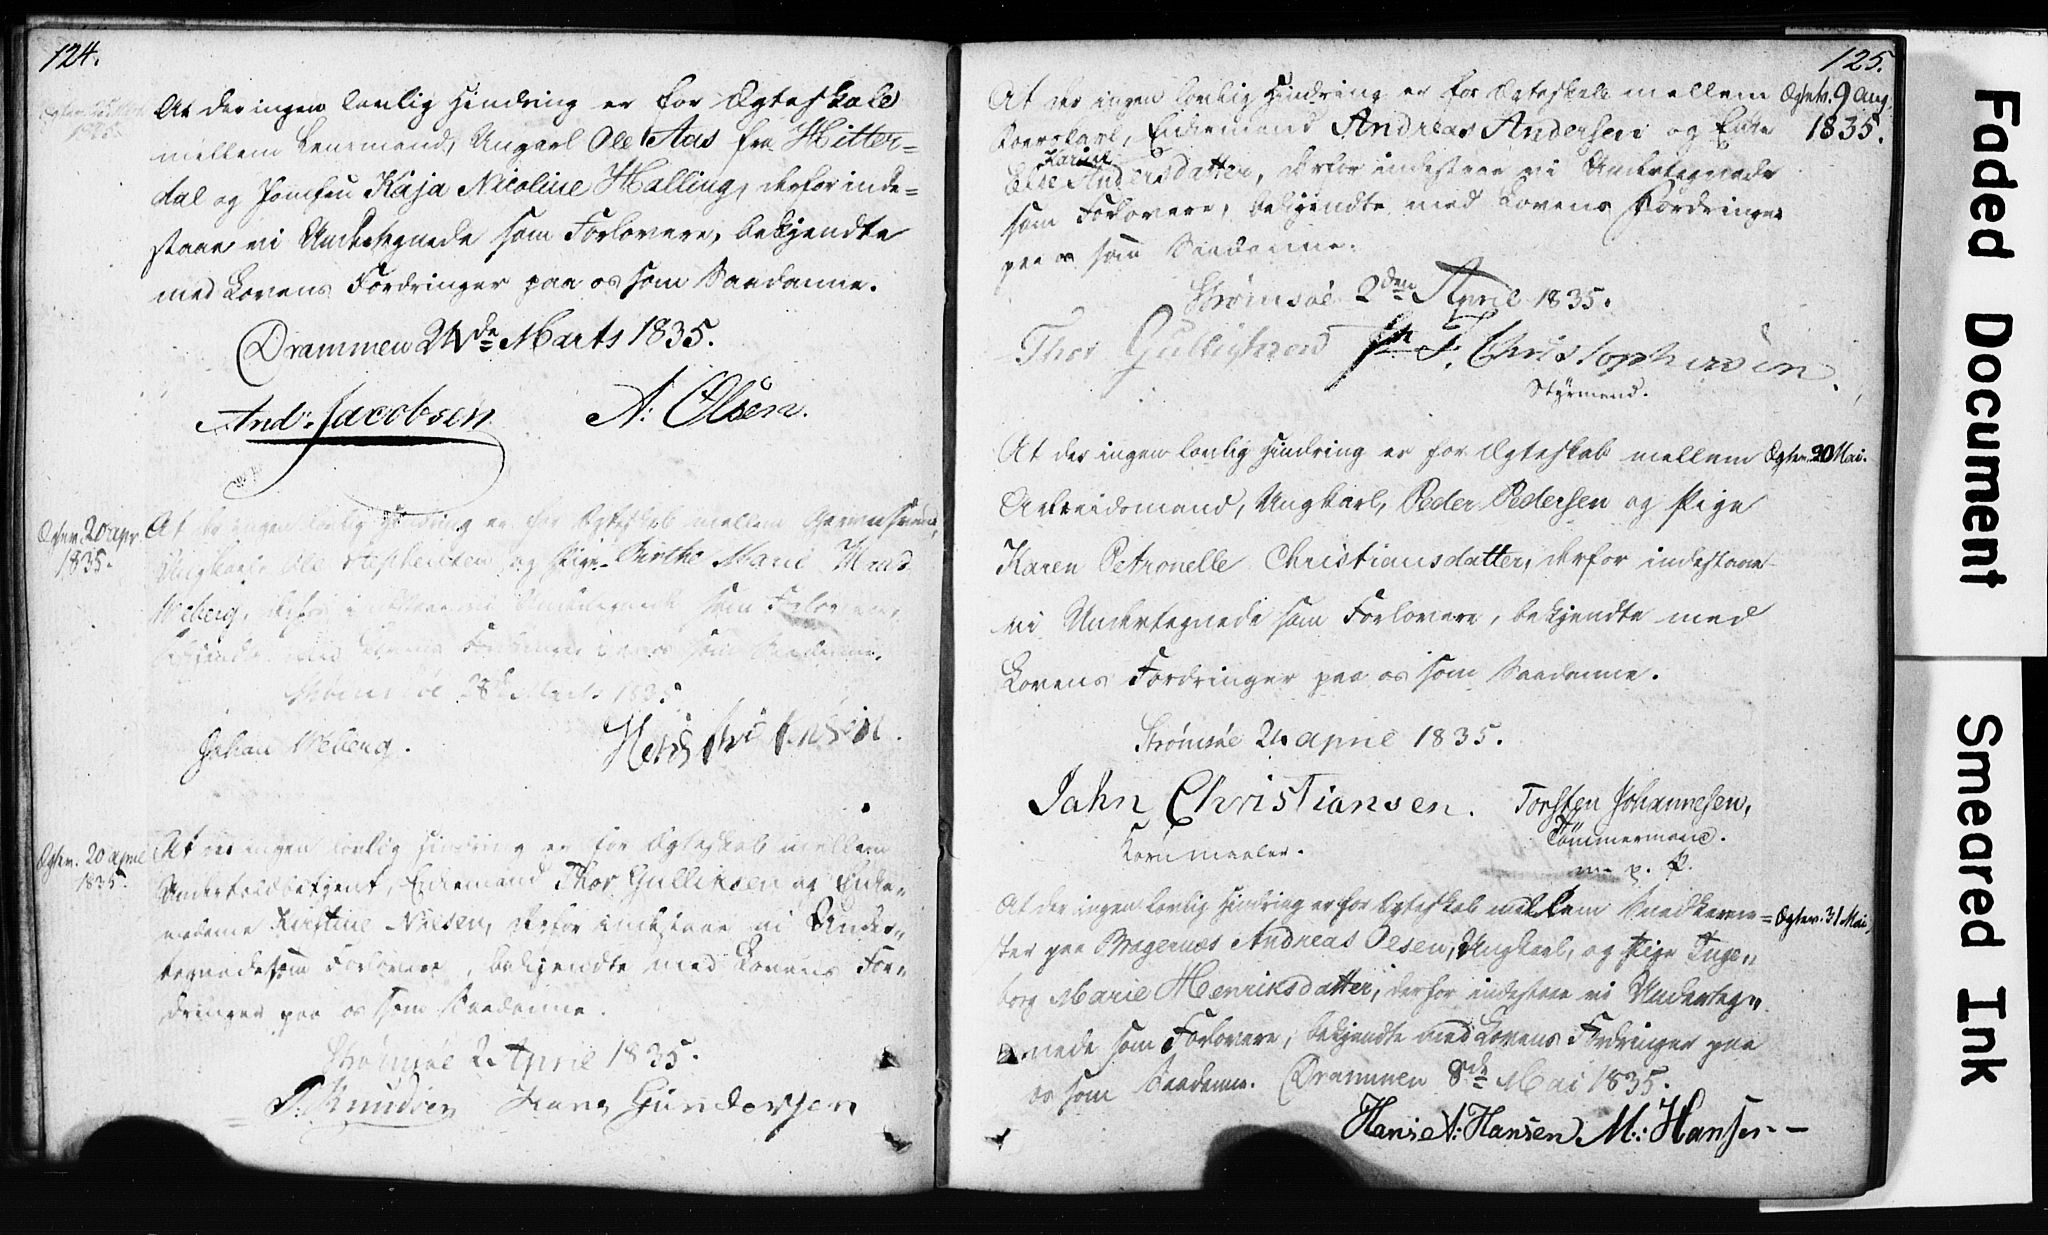 124.
At der ingen lovlig Hindring er for Ægteskab
mellem Lensmand, Ungkarl Ole Aas fra Hitter=
dal og Jomfru Kaja Nicoline Halling, derfor inde=
staae vi Undertegnede som Forlovere, bekjendte
med Lovens Fordringer paa os som Saadanne.
Drammen 24de Marts 1835.
And: Jacobsen A: Olsen.
Ægtev. 20 apr.
1835.
At der ingen lovlig Hindring er for Ægteskab mellem
Ungkarl Ole Stephensen og Pige Birthe Marie
Weberg, derfor indestaae vi Undertegnede som Forlovere,
bekjendte med Lovens Fordringer paa os som Saadanne.
Strømsøe 28de Marts 1835
Johan Weberg.
Ægtev. 20 april
1835.
At der ingen lovlig Hindring er for Ægteskab mellem
Undertoldbetjent, Enkemand Thor Gulliksen og Enke„
madame Kirstine Nilsen, derfor indestaae vi Under„
tegnede som Forlovere, bekjendte med Lovens For„
dringer paa os som Saadanne.
Strømsøe 2 April 1835.
Knudsen Hans Gundersen
125.
At der ingen lovlig Hindring er for Ægteskab mellem
Ægtev. 9 Aug.
1835.
Enkemand Andreas Andersen og Enke
Karine
Else Andersdatter, derfor indestaae vi Undertegnede
som Forlovere, bekjendte med Lovens Fordringer
paa os som Saadanne.
Strømsøe 2den April 1835.
Thor Gulliksen F. Christophersen.
Styrmand.
At der ingen lovlig Hindring er for Ægteskab mellem
Ægtev. 20 Mai.
Arbeidsmand, Ungkarl, Peder Pedersen og Pige
Karen Petronelle Christiansdatter, derfor indestaae
vi Undertegnede som Forlovere, bekjendte med
Lovens Fordringer paa os som Saadanne.
Strømsøe 24 april 1835.
Jahn Christiansen. Torsten Johannesen,
Kornmaaler. Tömmermand.
m. p. P.
At der ingen lovlig Hindring er for Ægteskab mellem Snedkerme=
Ægtev. 31 Mai,
ster paa Bragernæs Andreas Olsen, Ungkarl, og Pige Inge„
borg Marie Henriksdatter, derfor indestaae vi Underteg„
nede som Forlovere, bekjendte med Lovens Fordringer paa
os som Saadanne. Drammen 8de Mai 1835.
Hans A: Hansen M: Hansen
Faded Document
Smeared Ink